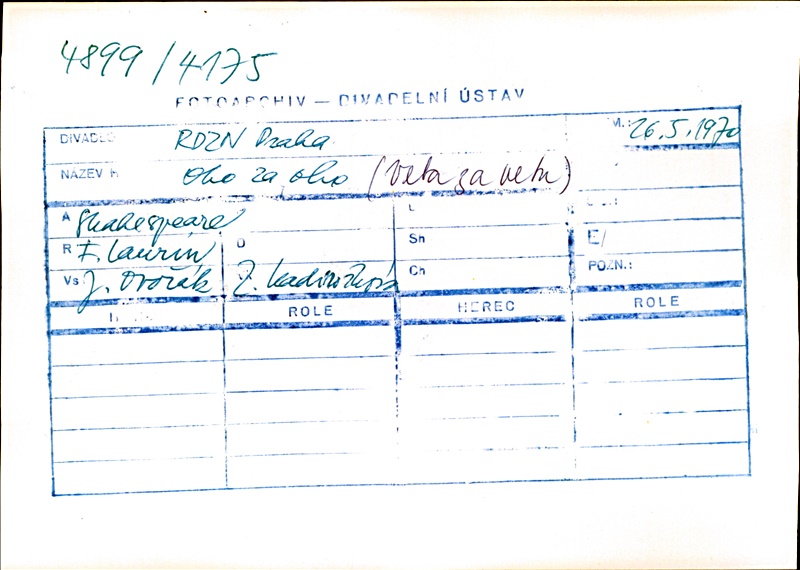 4899/4175
FOTOARCHIV — DIVADELNÍ ÚSTAV
DIVADLO RDZN Praha M.: 26.5.1970
NÁZEV H Oko za oko (Veta za vetu)
A Shakespeare
R F. Laurin D Sh E/
Vs J. Dvořák Z. Kadrnožková Ch POZN.:
ROLE HEREC ROLE